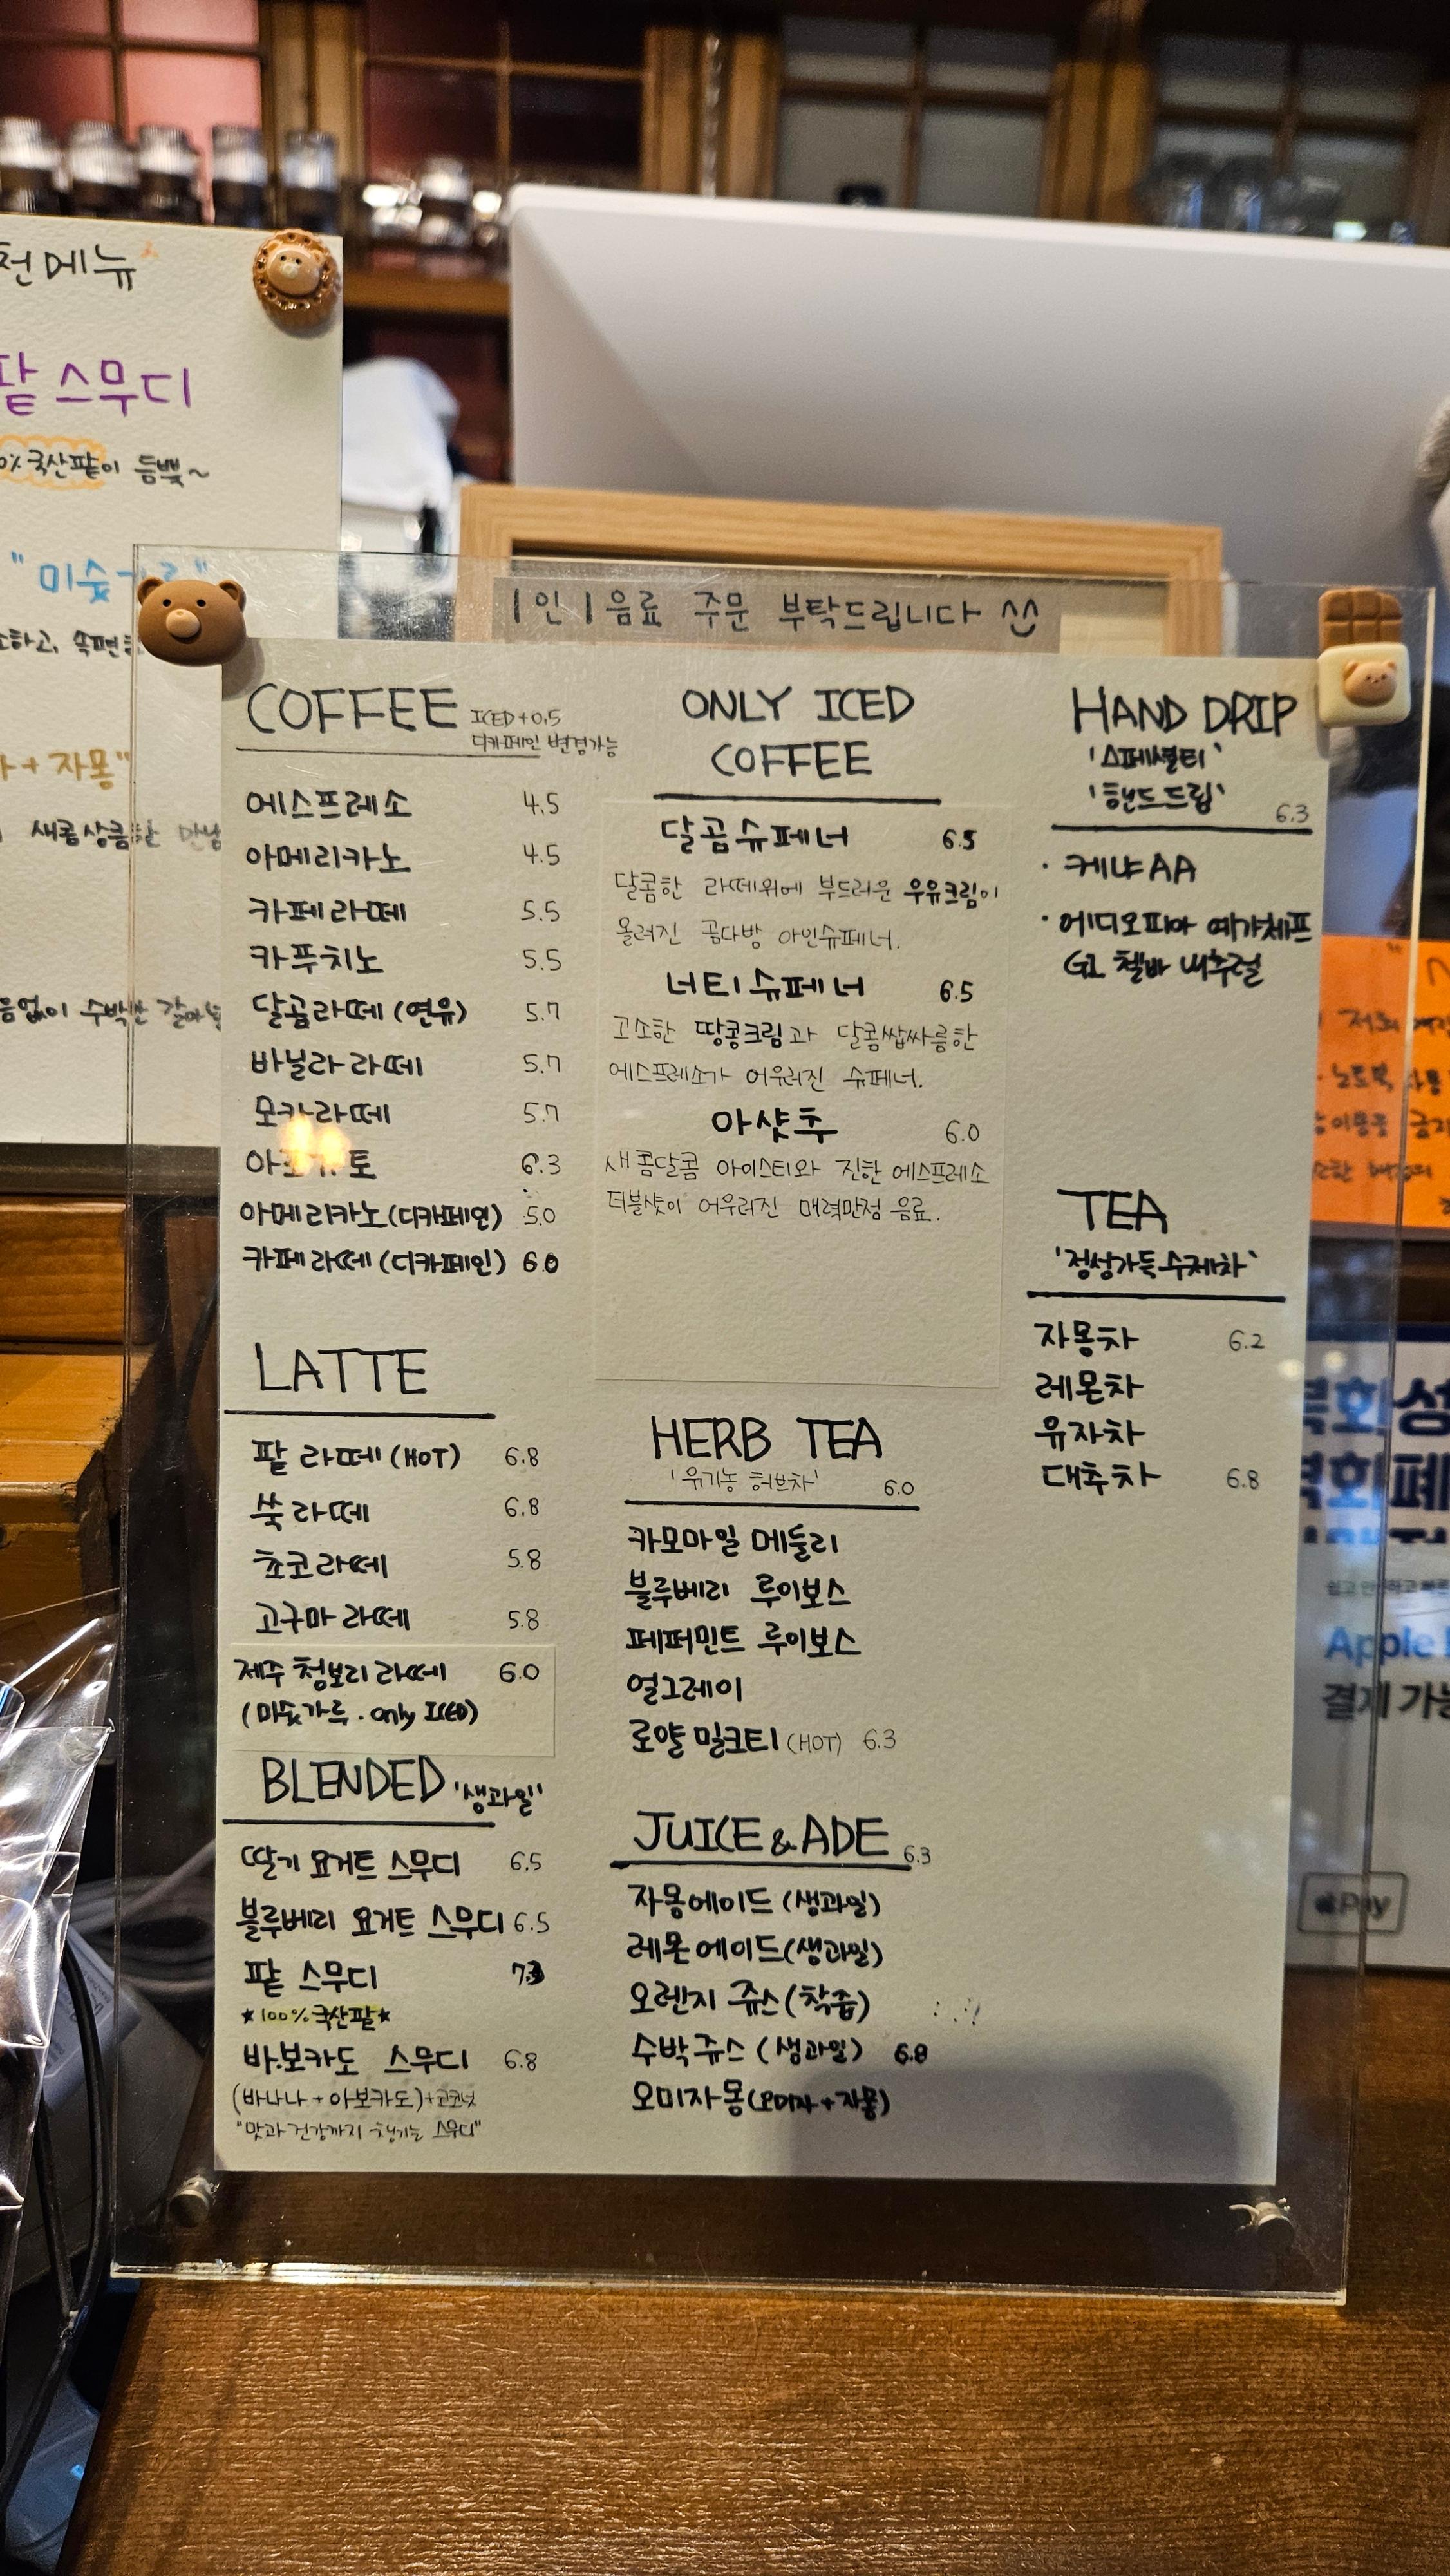 천메뉴
팥 스무디
0% 국산팥이 듬뿍~
"미숫
하고, 속편한
+ 자몽"
새콤상큼한 만남
음없이 수박만 갈아
1인 1음료 주문 부탁드립니다 ^^
COFFEE ICED+0.5
디카페인 변경가능
에스프레소 4.5
아메리카노 4.5
카페라떼 5.5
카푸치노 5.5
달곰라떼 (연유) 5.7
바닐라 라떼 5.7
모카라떼 5.7
아포가토 6.3
아메리카노(디카페인) 5.0
카페라떼 (디카페인) 6.0
LATTE
팥 라떼 (HOT) 6.8
쑥 라떼 6.8
쵸코 라떼 5.8
고구마 라떼 5.8
제주 청보리 라떼 6.0
(미숫가루. only ICED)
BLENDED '생과일'
딸기 요거트 스무디 6.5
블루베리 요거트 스무디 6.5
팥 스무디 7.3
★100% 국산팥★
바.보카도 스무디 6.8
(바나나 + 아보카도)+코코넛
"맛과 건강까지 챙기는 스무디"
ONLY ICED
COFFEE
달곰슈페너 6.5
달콤한 라떼위에 부드러운 우유크림이
올려진 곰다방 아인슈페너.
너티슈페너 6.5
고소한 땅콩크림과 달콤쌉싸름한
에스프레소가 어우러진 슈페너.
아샷추 6.0
새콤달콤 아이스티와 진한 에스프레소
더블샷이 어우러진 매력만점 음료.
HERB TEA
'유기농 허브차' 6.0
카모마일 메들리
블루베리 루이보스
페퍼민트 루이보스
얼그레이
로얄 밀크티 (HOT) 6.3
JUICE & ADE 6.3
자몽에이드 (생과일)
레몬에이드(생과일)
오렌지 쥬스 (착즙)
수박쥬스 (생과일) 6.8
오미자몽(오미자+자몽)
HAND DRIP
'스페셜티'
'핸드드립' 6.3
· 케냐 AA
· 에디오피아 예가체프
G1 첼바 내추럴
TEA
'정성가득 수제차'
자몽차 6.2
레몬차
유자차
대추차 6.8
저희
노트북 사용
이용 금지
Apple
결제 가능
Pay